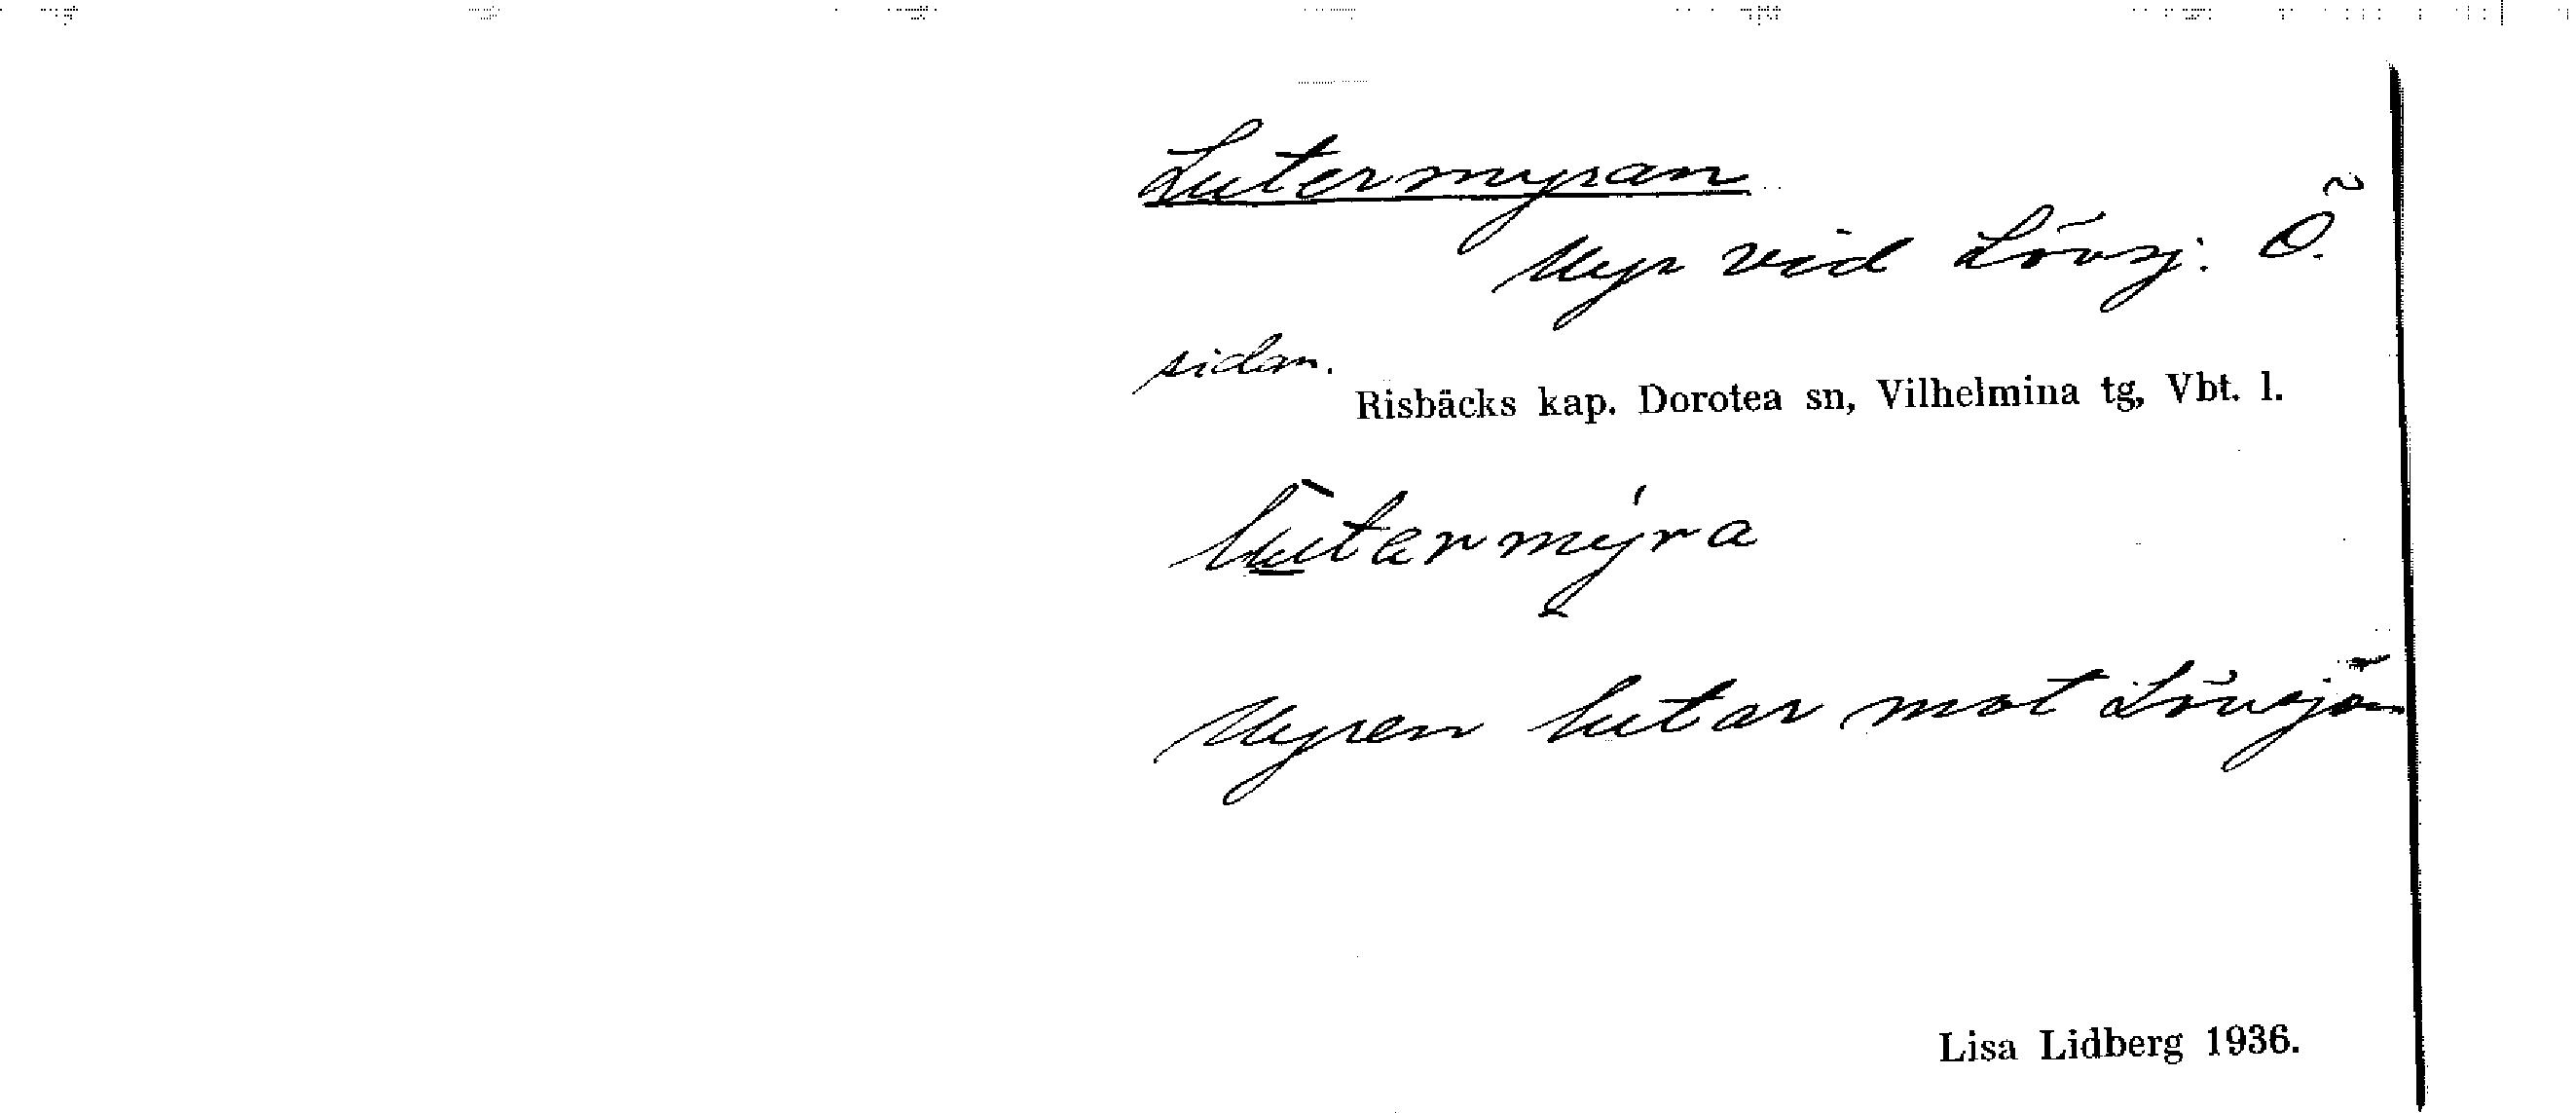 Lutermyran
Myr vid Lövsj. Ö.
sidan.
Risbäcks kap. Dorotea sn, Vilhelmina tg, Vbt. l.
lùtermýra
Myren lutar mot Lövsjön
Lisa Lidberg 1936.